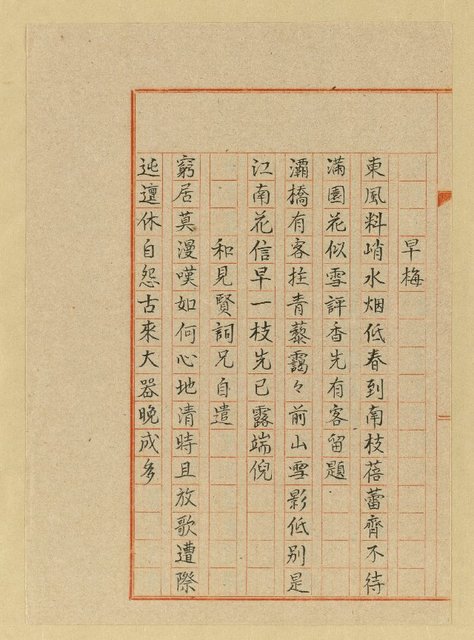 早梅
東風料峭水烟低春到南枝蓓蕾齊不待
滿園花似雪評香先有客留題
灞橋有客拄青藜靄々前山雪影低別是
江南花信早一枝先已露端倪
和見賢詞兄自遣
窮居莫漫嘆如何心地清時且放歌遭際
迍邅休自怨古來大器晚成多